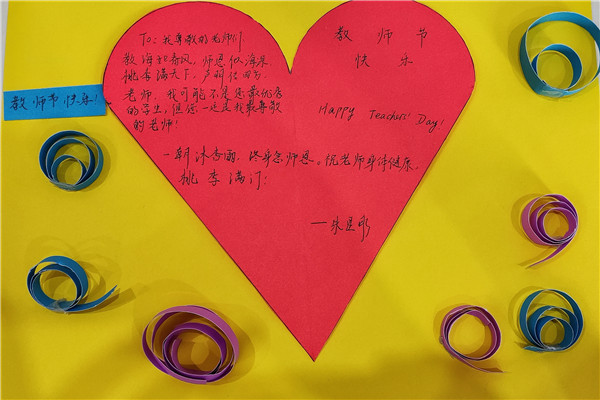 教师节快乐!
To: 我尊敬的老师们
教诲如春风，师恩似海深
桃李满天下，
老师，我可能不是您最优秀
的学生，但您一定是我最尊敬
的老师!
教 师 节
快 乐
Happy Teachers' Day!
一朝沐杏雨，终身念师恩。祝老师身体健康，
桃李满门!